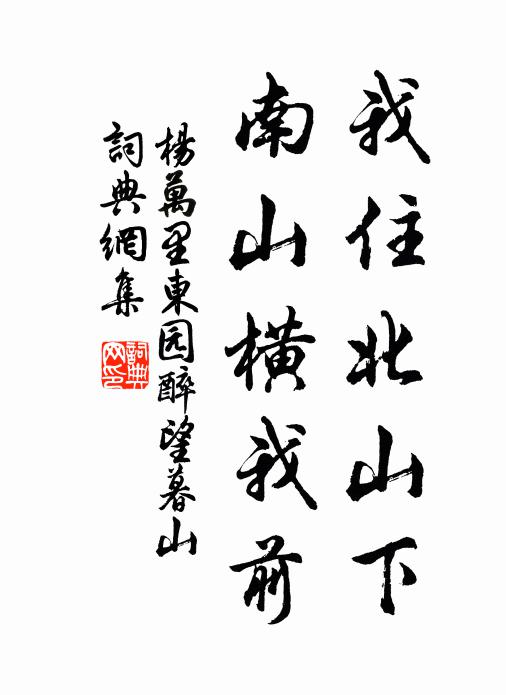 我住北山下
南山横我前
楊萬里東园醉望暮山
詞典網集
詞典網印